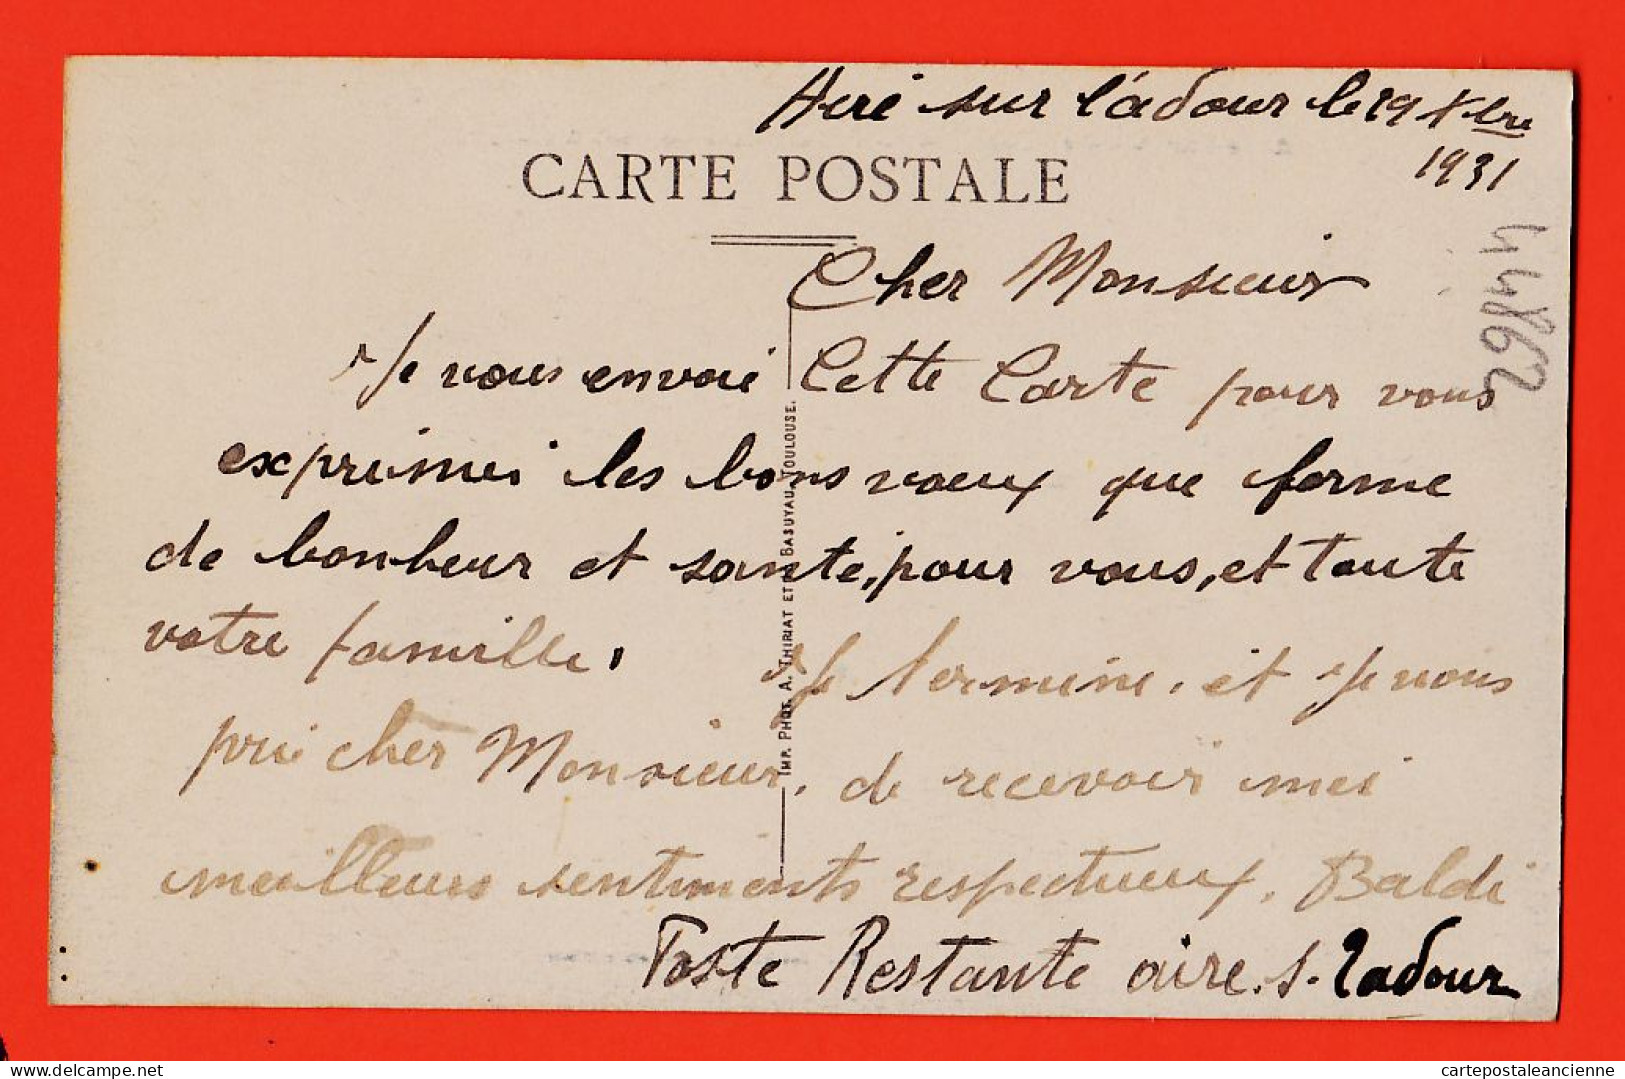 Aire sur l'adour le 29 Xbre
1931
CARTE POSTALE
44862
Cher Monsieur
Je vous envoi Cette Carte pour vous
exprimei les bons voeux que forme
de bonheur et sante, pour vous, et toute
votre famille. Je termine, et Je vous
prie cher Monsieur, de recevoir mei
meilleurs sentiments respectueux. Baldi
Poste Restante aire. s. Ladour
IMP. PHOT. A. THIRIAT ET BASUYAU, TOULOUSE.
delcampe.net
cartepostaleancienne